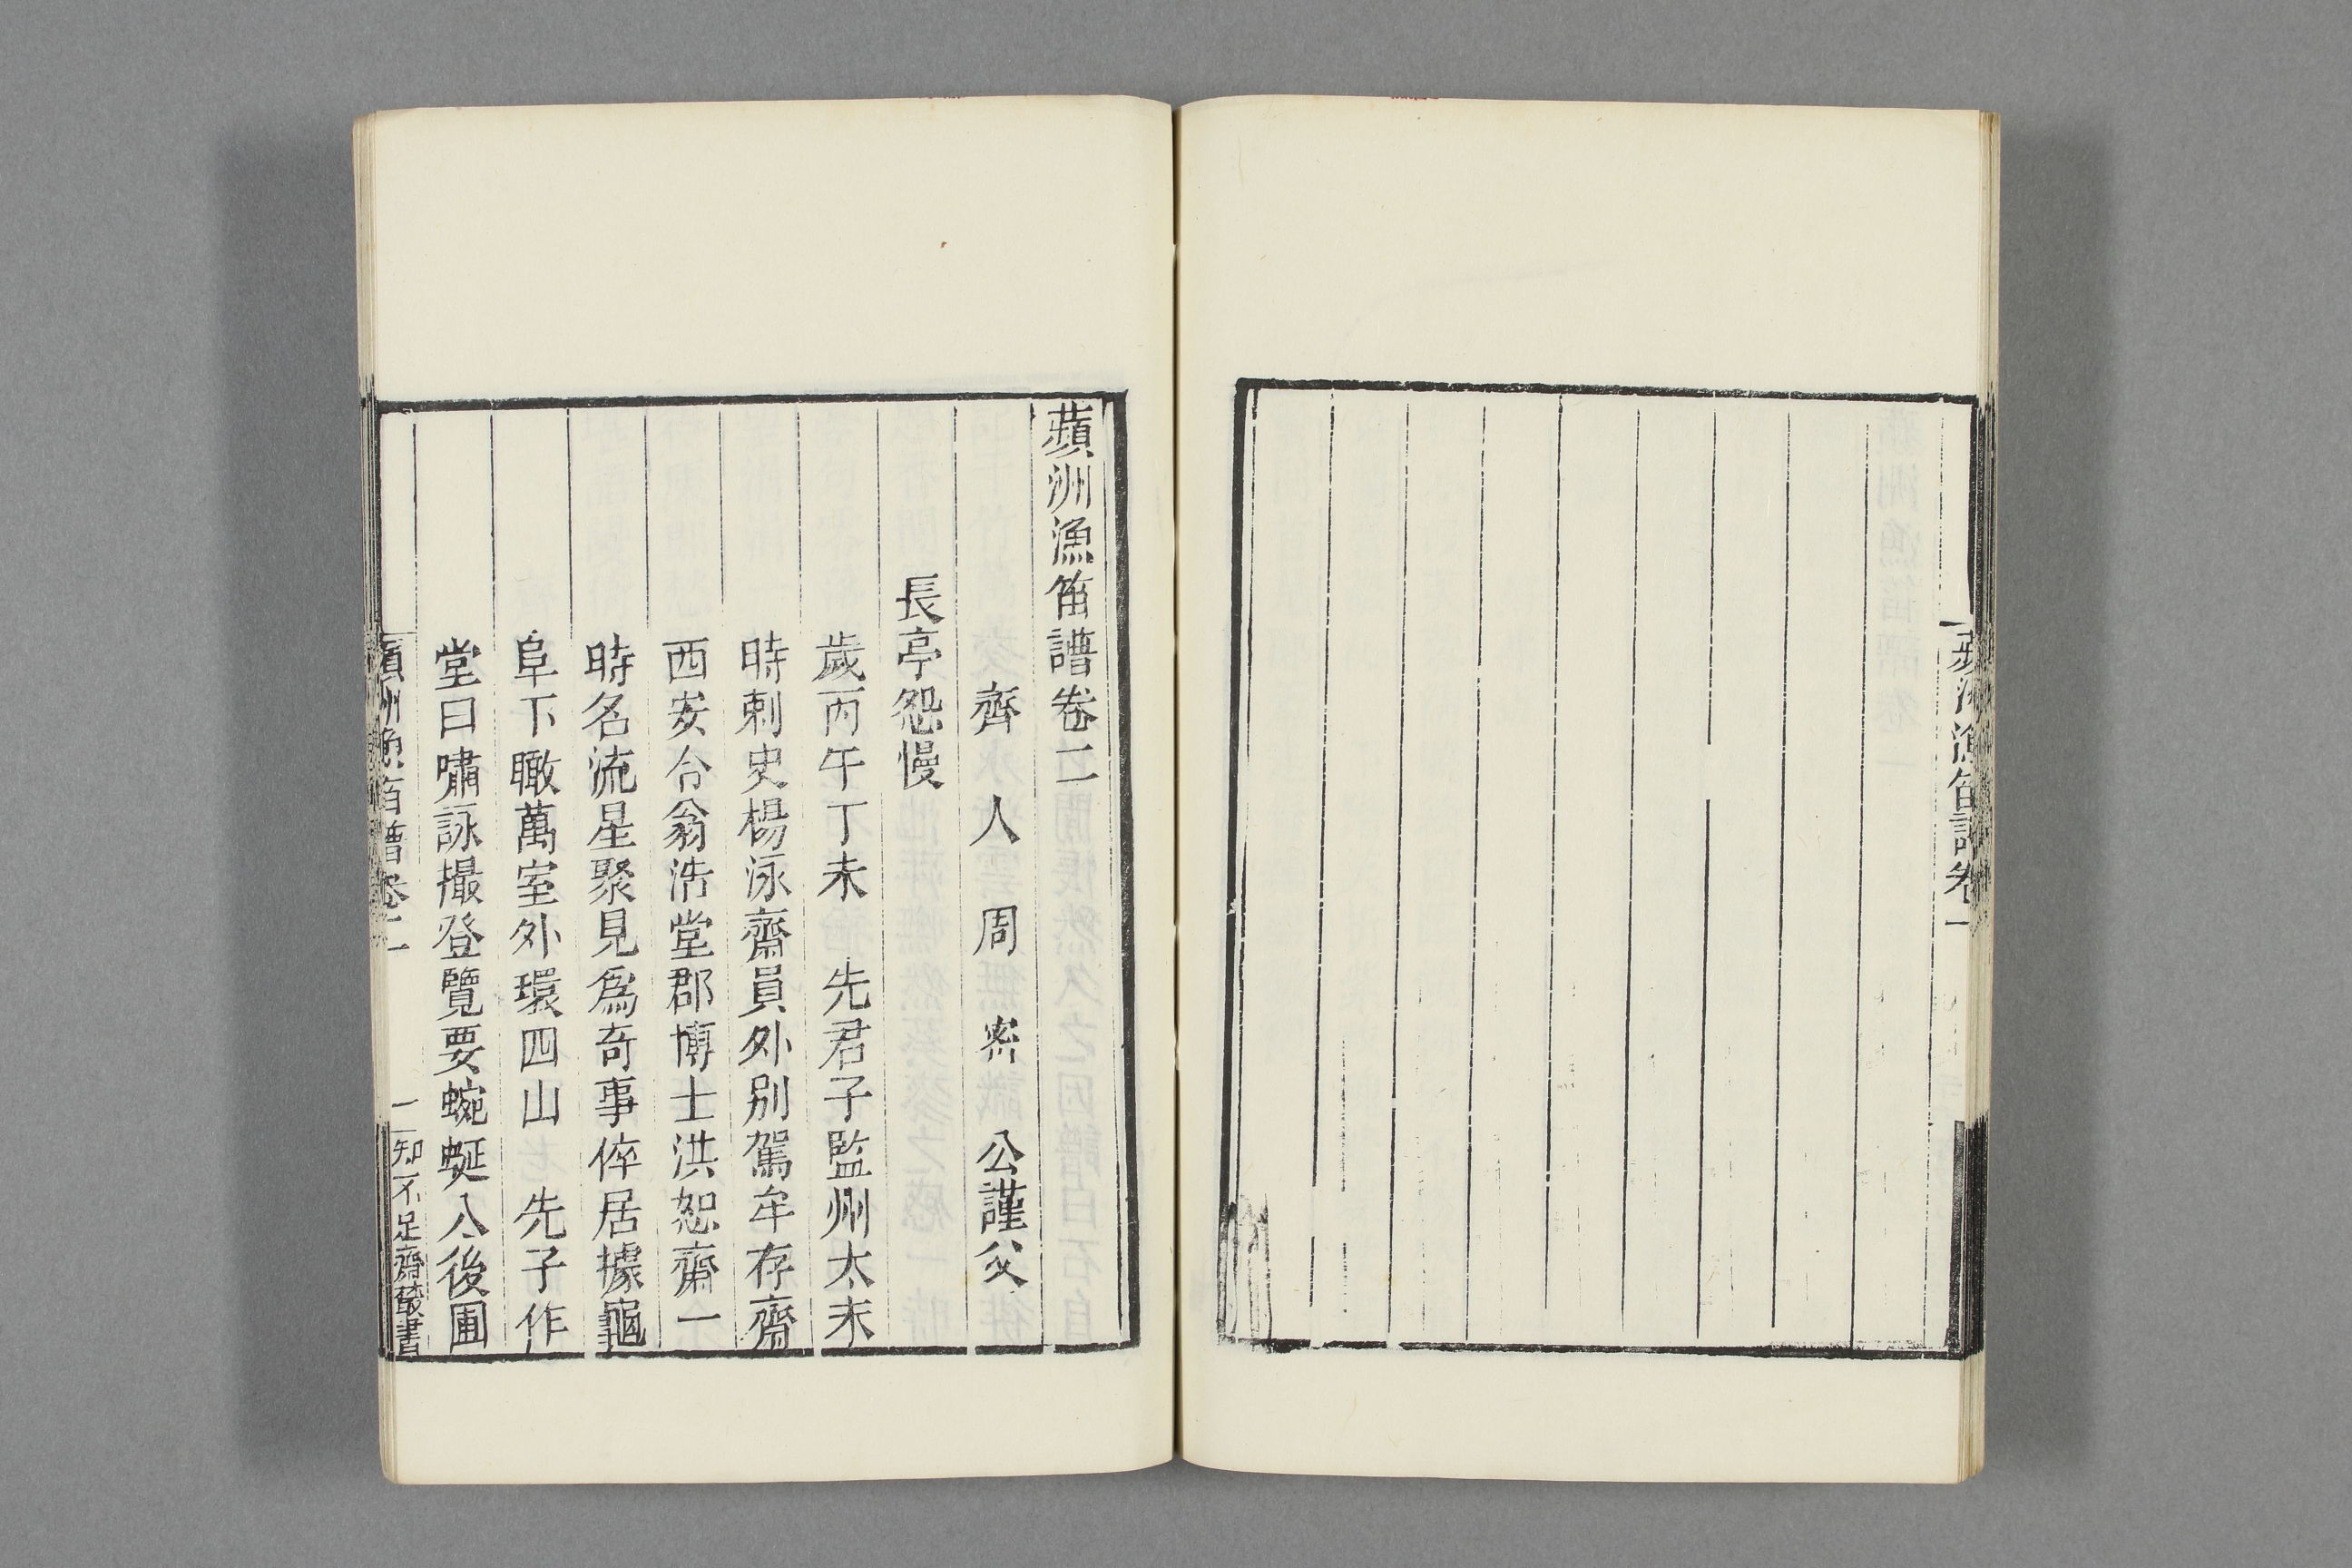 蘋洲漁笛譜卷一
蘋洲漁笛譜卷二
齊人周密公謹父
長亭怨慢
歲丙午丁未　先君子監州太末
時刺史楊泳齋員外別駕牟存齋
西安令翁浩堂郡博士洪恕齋一
時名流星聚見爲奇事倅居據龜
阜下瞰萬室外環四山　先子作
堂曰嘯詠撮登覽要蜿蜒入後圃
蘋洲漁笛譜卷二
一
知不足齋叢書